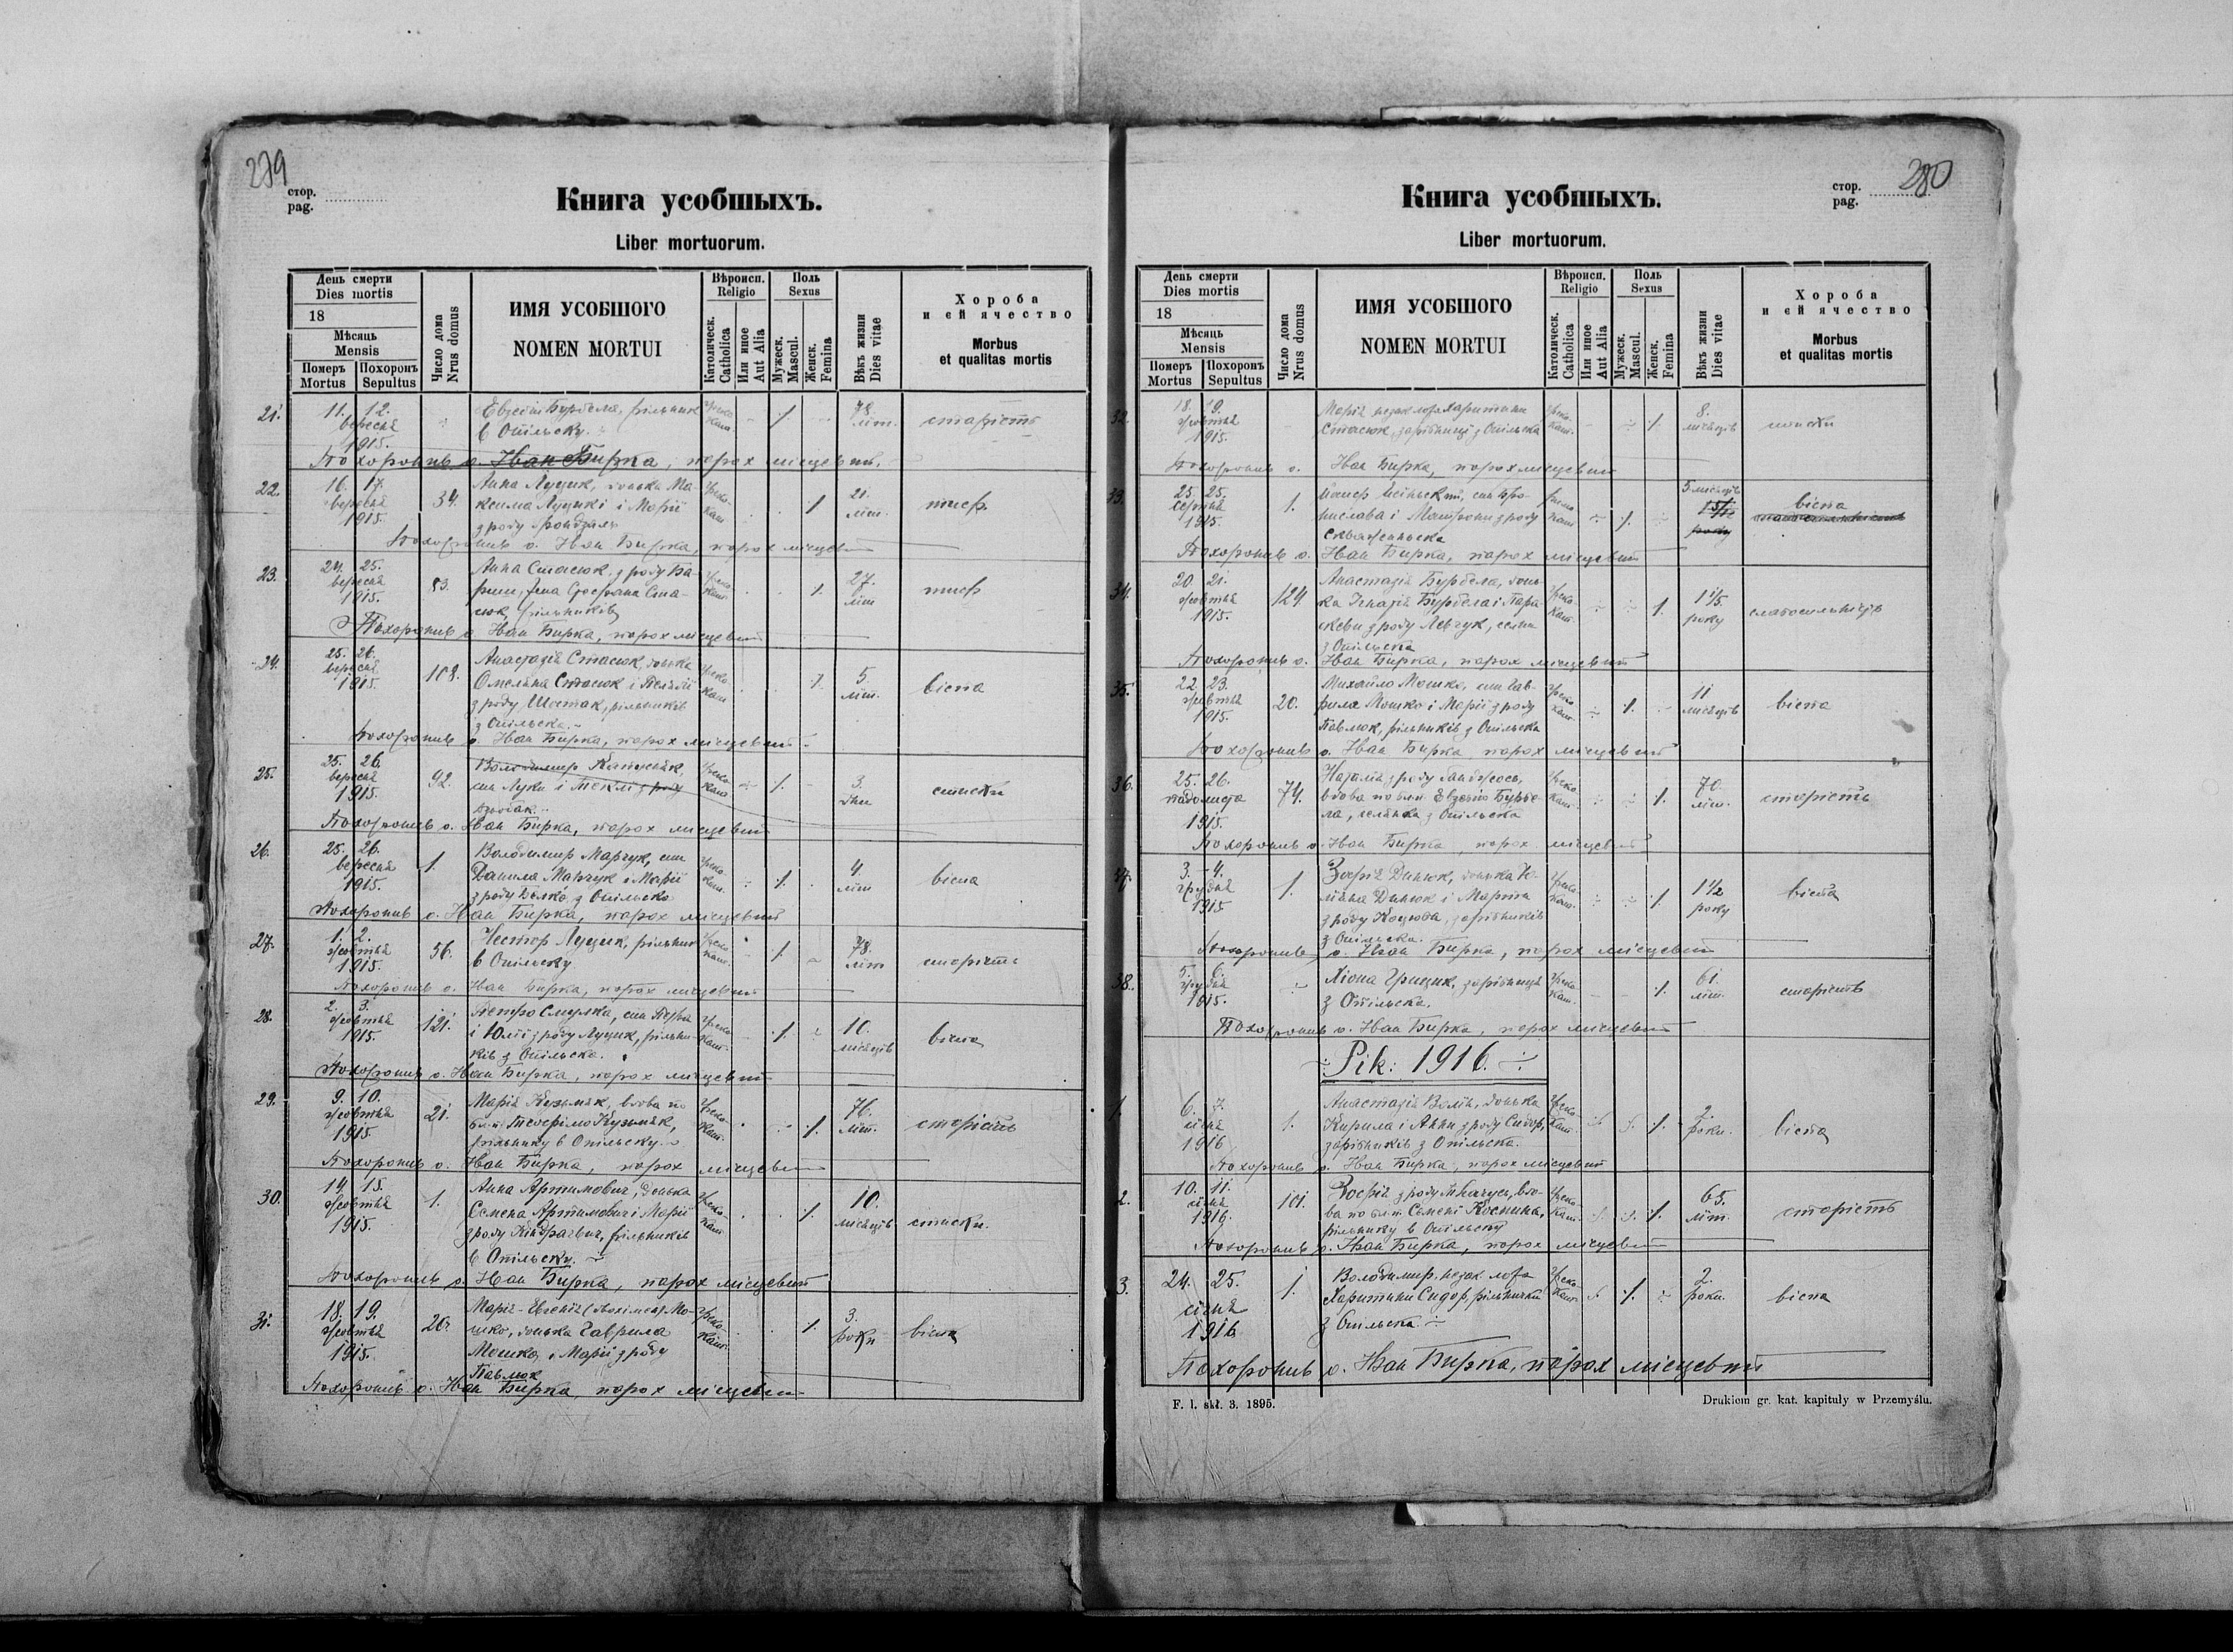 279
стор.
pag.
Книга усобшыхъ.
Liber mortuorum.
День смерти
Dies mortis
18
Мѣсяць
Mensis
Померъ
Mortus
Похоронъ
Sepultus
Число дома
Nrus domus
ИМЯ УСОБШОГО
NOMEN MORTUI
Вѣроисп.
Religio
Католическ.
Catholica
Или иное
Aut Alia
Поль
Sexus
Мужеск.
Mascul.
Женск.
Femina
Вѣкъ жизни
Dies vitae
Хороба
и ей ячество
Morbus
et qualitas mortis
21. 11. 12. Евгеній Бурбела, рільник Греко 78. старість
вересня в Опільску. кат. літ.
1915.
Похоронив о. Іван Бирка, парох місцевий.
22. 16. 17. 34. Анна Луцик, донька Ма- Греко- 21. тиф
вересня ксима Луцик і Марії кат літ.
1915. з роду
Похоронив о. Іван Бирка, парох місцевий
23. 24. 25. 83. Анна Стасюк з роду Ба- Греко- 27. тиф
вересня жена Стефана Ста- кат. літ
1915. сюк, рільників
Похоронив о. Іван Бирка, парох місцевий
24. 25. 26. 108. Анастазія Стасюк, донька Греко- 5. віспа
вересня Омеляна Стасюк і Пелагії кат літ.
1915 з роду Шостак, рільників
з Опільска.
Похоронив о. Іван Бирка, парох місцевий
25. 25. 26. 92. Володимир Капусняк, Греко- 3. стиски
вересня син Луки і Теклі з роду кат дни
1915.
Похоронив о. Іван Бирка, парох місцевий
26. 25. 26. 1. Володимир Марчук, син Греко- 4. віспа
вересня Данила Марчук і Марії кат. літ
1915. з роду Белко з Опільска
Похоронив о. Іван Бирка, парох місцевий
27. 1. 2. 56. Нестор Луцик, рільник Греко 78. старість
жовтня в Опільску кат. літ
1915.
Похоронив о. Іван Бирка, парох місцевий
28. 2. 3. 121. Петро Смулка, син Петра Греко- 10. віспа
жовтня і Юлії з роду Луцик, рільни- кат. місяців
1915. ків з Опільска.
Похоронив о. Іван Бирка, парох місцевий
29. 9. 10. 21. Марія Кузьмяк, вдова по Греко- 76. старість
жовтня бл.п. Теофілю Кузьмяк, кат. літ.
1915 рільнику в Опільску.
Похоронив о. Іван Бирка, парох місцевий
30. 14. 15. 1. Анна Артимович, донька Греко- 10. стиски.
жовтня Семена Артимович і Марії кат. місяців
1915. з роду Кіндрачвич, рільників
в Опільску.
Похоронив о. Іван Бирка, парох місцевий
31. 18. 19. 20. Марія-Евгенія (двоіменя) Мо- Греко- 3. віспа
жовтня шко, донька Гаврила кат. роки
1915. Мошко, і Марії з роду
Павлюк
Похоронив о. Іван Бирка, парох місцевий
280
стор.
pag.
Книга усобшыхъ.
Liber mortuorum.
День смерти
Dies mortis
18
Мѣсяць
Mensis
Померъ
Mortus
Похоронъ
Sepultus
Число дома
Nrus domus
ИМЯ УСОБШОГО
NOMEN MORTUI
Вѣроисп.
Religio
Католическ.
Catholica
Или иное
Aut Alia
Поль
Sexus
Мужеск.
Mascul.
Женск.
Femina
Вѣкъ жизни
Dies vitae
Хороба
и ей ячество
Morbus
et qualitas mortis
32. 18. 19. Марія незак. лоря Харитини Греко- 8.
жовтня Стасюк, зарібниці з Опільска кат. місяців
1915.
Похоронив о. Іван Бирка, парох місцевий
33. 25. 25. 1. син Бро- Греко 5 місяців віспа
серпня нислава і Матрони з роду кат
1915.
Похоронив о. Іван Бирка, парох місцевий
34. 20. 21. 124. Анастазія Бурбела, донь- Греко- 1 1/5 слабосильність
жовтня ка Ігнатія Бурбела і Пара- кат. року
1915. скеви з роду Левчук, селян
з Опільска
Похоронив о. Іван Бирка, парох місцевий
35. 22. 23. 20. Михайло Мошко, син Гав- Греко 11 віспа
жовтня рила Мошко і Марії з роду кат. місяців
1915. Павлюк, рільників з Опільска
Похоронив о. Іван Бирка парох місцевий
36. 25. 26. 74. Наталія з роду Греко 70. старість
падолиста вдова по бл.п. Евгенію Бурбе- кат. літ.
1915. ла, селянка з Опільска
Похоронив о. Іван Бирка, парох місцевий
37. 3. 4. 1. Зофія Динюк, донька Ю- Греко- 1 1/2 віспа
грудня ліяна Динюк і Марти кат. року
1915 з роду Коцюба, зарібників
з Опільска.
Похоронив о. Іван Бирка, парох місцевий
38. 5. 6. Хіона Грицик, зарібниця Греко 61. старість
грудня з Опільска. кат. літ.
1915.
Похоронив о. Іван Бирка, парох місцевий
Рік: 1916.
1. 6. 7. 1. Анастазія Волян, донька Греко- 2. віспа
січня Кирила і Анни з роду Сидор, кат. роки.
1916 зарібників з Опільска.
Похоронив о. Іван Бирка, парох місцевий
2. 10. 11. 101. Зофія з роду Ткачук, вдо- Греко- 65. старість
січня ва по бл.п. Семені Коспина, кат. літ.
1916. рільнику в Опільску
Похоронив о. Іван Бирка, парох місцевий
3. 24. 25. 1. Володимир незак. лоря Греко- 2. віспа
січня Харитини Сидор, рільнички кат. роки.
1916 з Опільска
Похоронив о. Іван Бирка, парох місцевий
F. l. skł. 3. 1895.
Drukiem gr. kat. kapituły w Przemyślu.